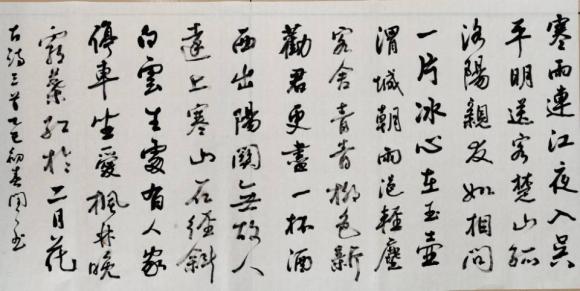 寒雨連江夜入吴
平明送客楚山孤
洛陽親友如相問
一片冰心在玉壺
渭城朝雨浥輕塵
客舍青青柳色新
勸君更盡一杯酒
西出陽關無故人
遠上寒山石徑斜
白雲生處有人家
停車坐愛楓林晚
霜葉紅於二月花
古詩三首乙巳初春